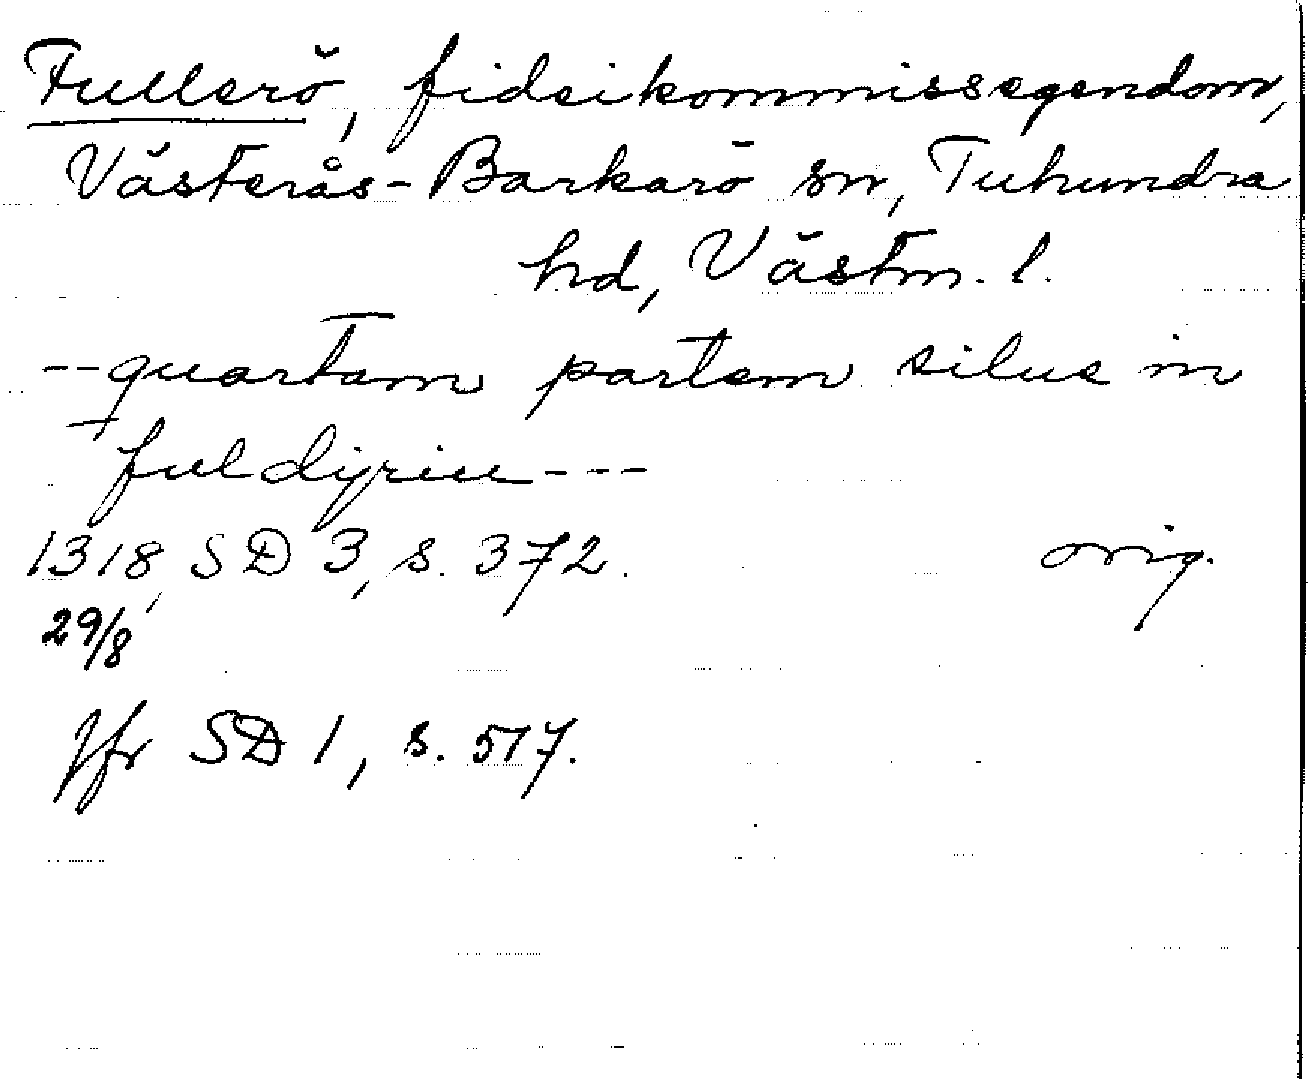 Fullerö, fideikommissegendom,
Västerås-Barkarö sn, Tuhundra
hd, Västm. l.
--quartam partem silue in
fuldyriu---
1318, SD 3, s. 372. orig.
29/8
Jfr SD 1, s. 517.